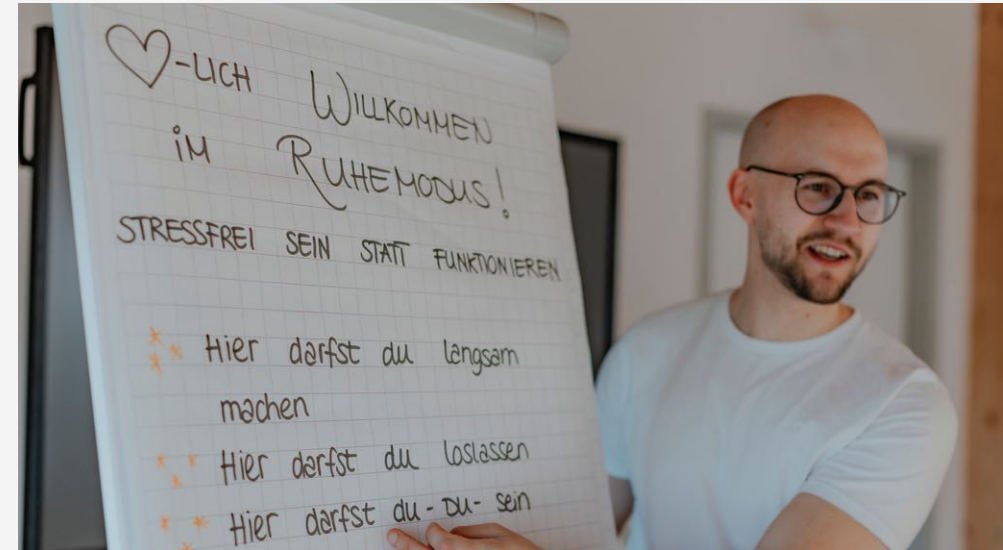 ♡-LICH WILLKOMMEN
IM RUHEMODUS!
STRESSFREI SEIN STATT FUNKTIONIEREN
Hier darfst du langsam
machen
Hier darfst du loslassen
Hier darfst du - DU - sein